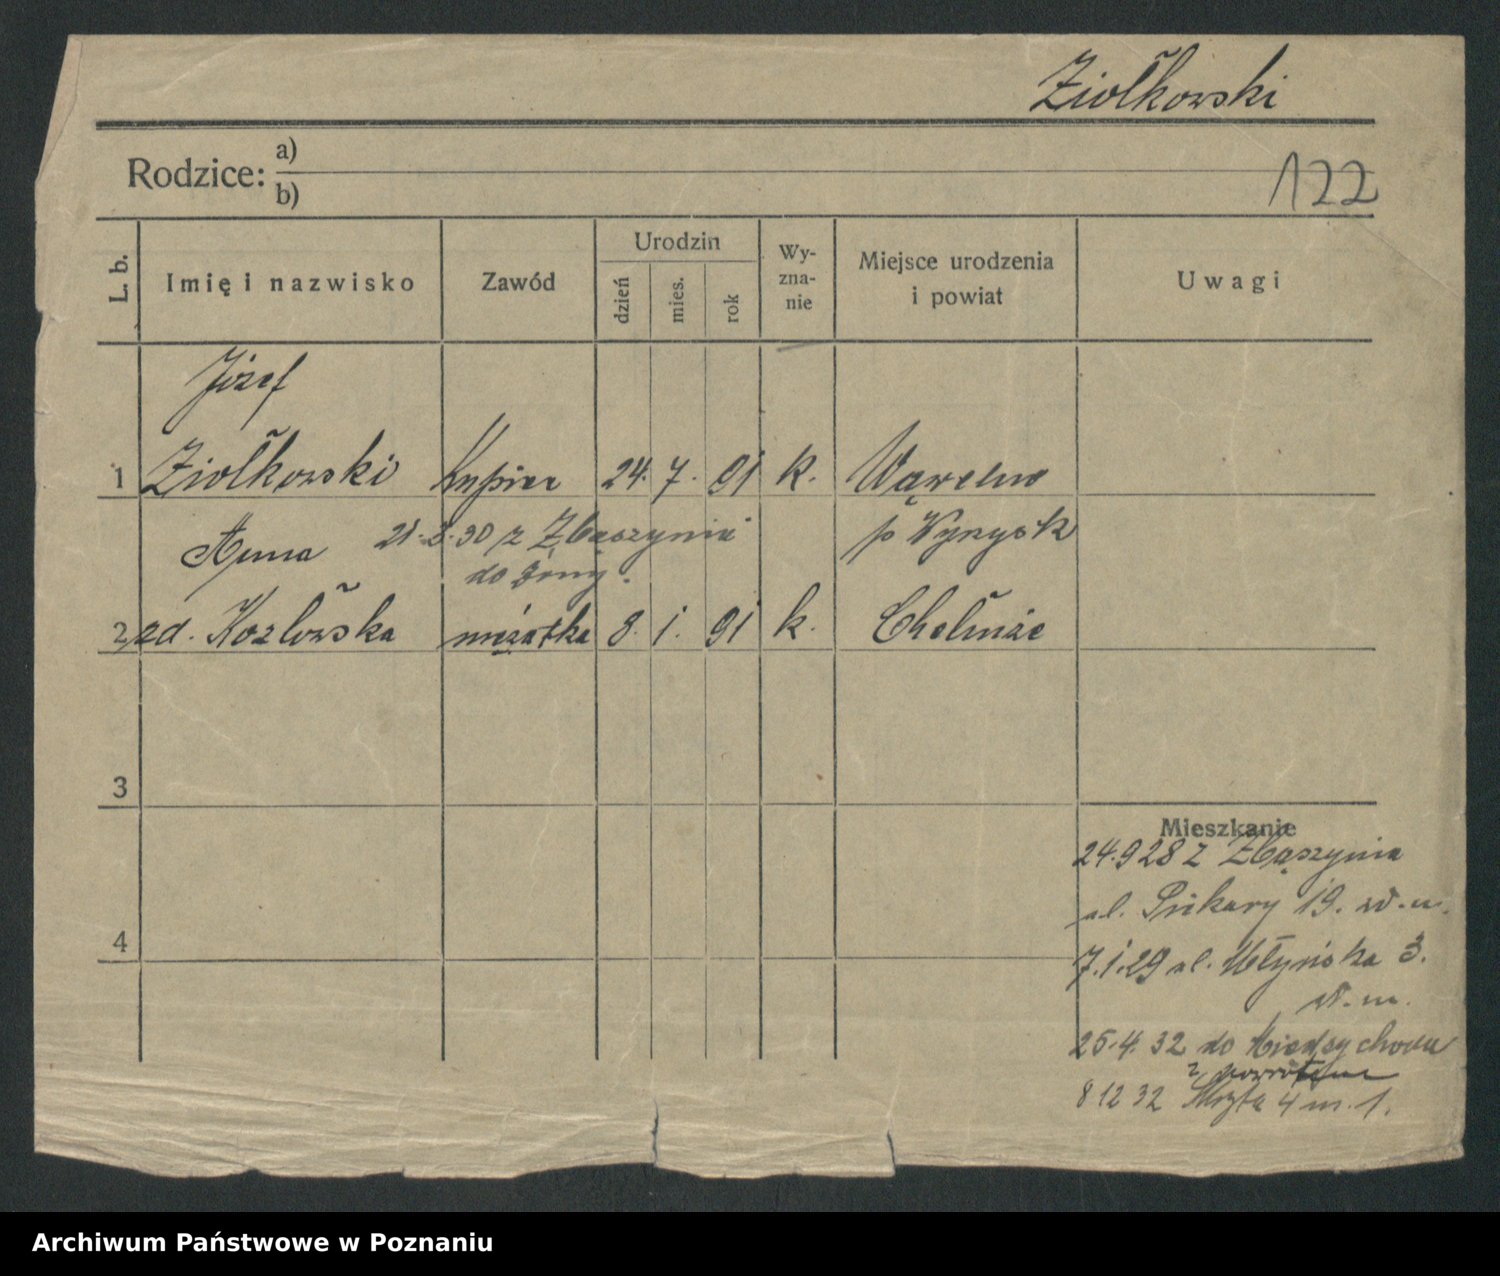 Ziołkowski
Rodzice: a)
b)
122
L. b.
Imię i nazwisko
Zawód
Urodzin
dzień
mies.
rok
Wy-
zna-
nie
Miejsce urodzenia
i powiat
Uwagi
Józef
1 Ziołkowski Kupiec 24. 7. 91 k. Wąwelno
p Wyrzysk
Anna 21.8.30 z Zbąszynia
do żony.
2 zd. Kozłowska mężatka 8. 1. 91 k. Chełmże
3
4
Mieszkanie
24.9 28 z Zbąszynia
ul. Piekary 19. w.m.
7.1.29 ul. Młyńska 3.
w.m.
25.4.32 do Międzychodu
z powrotem
8 12 32 4 m. 1.
Archiwum Państwowe w Poznaniu